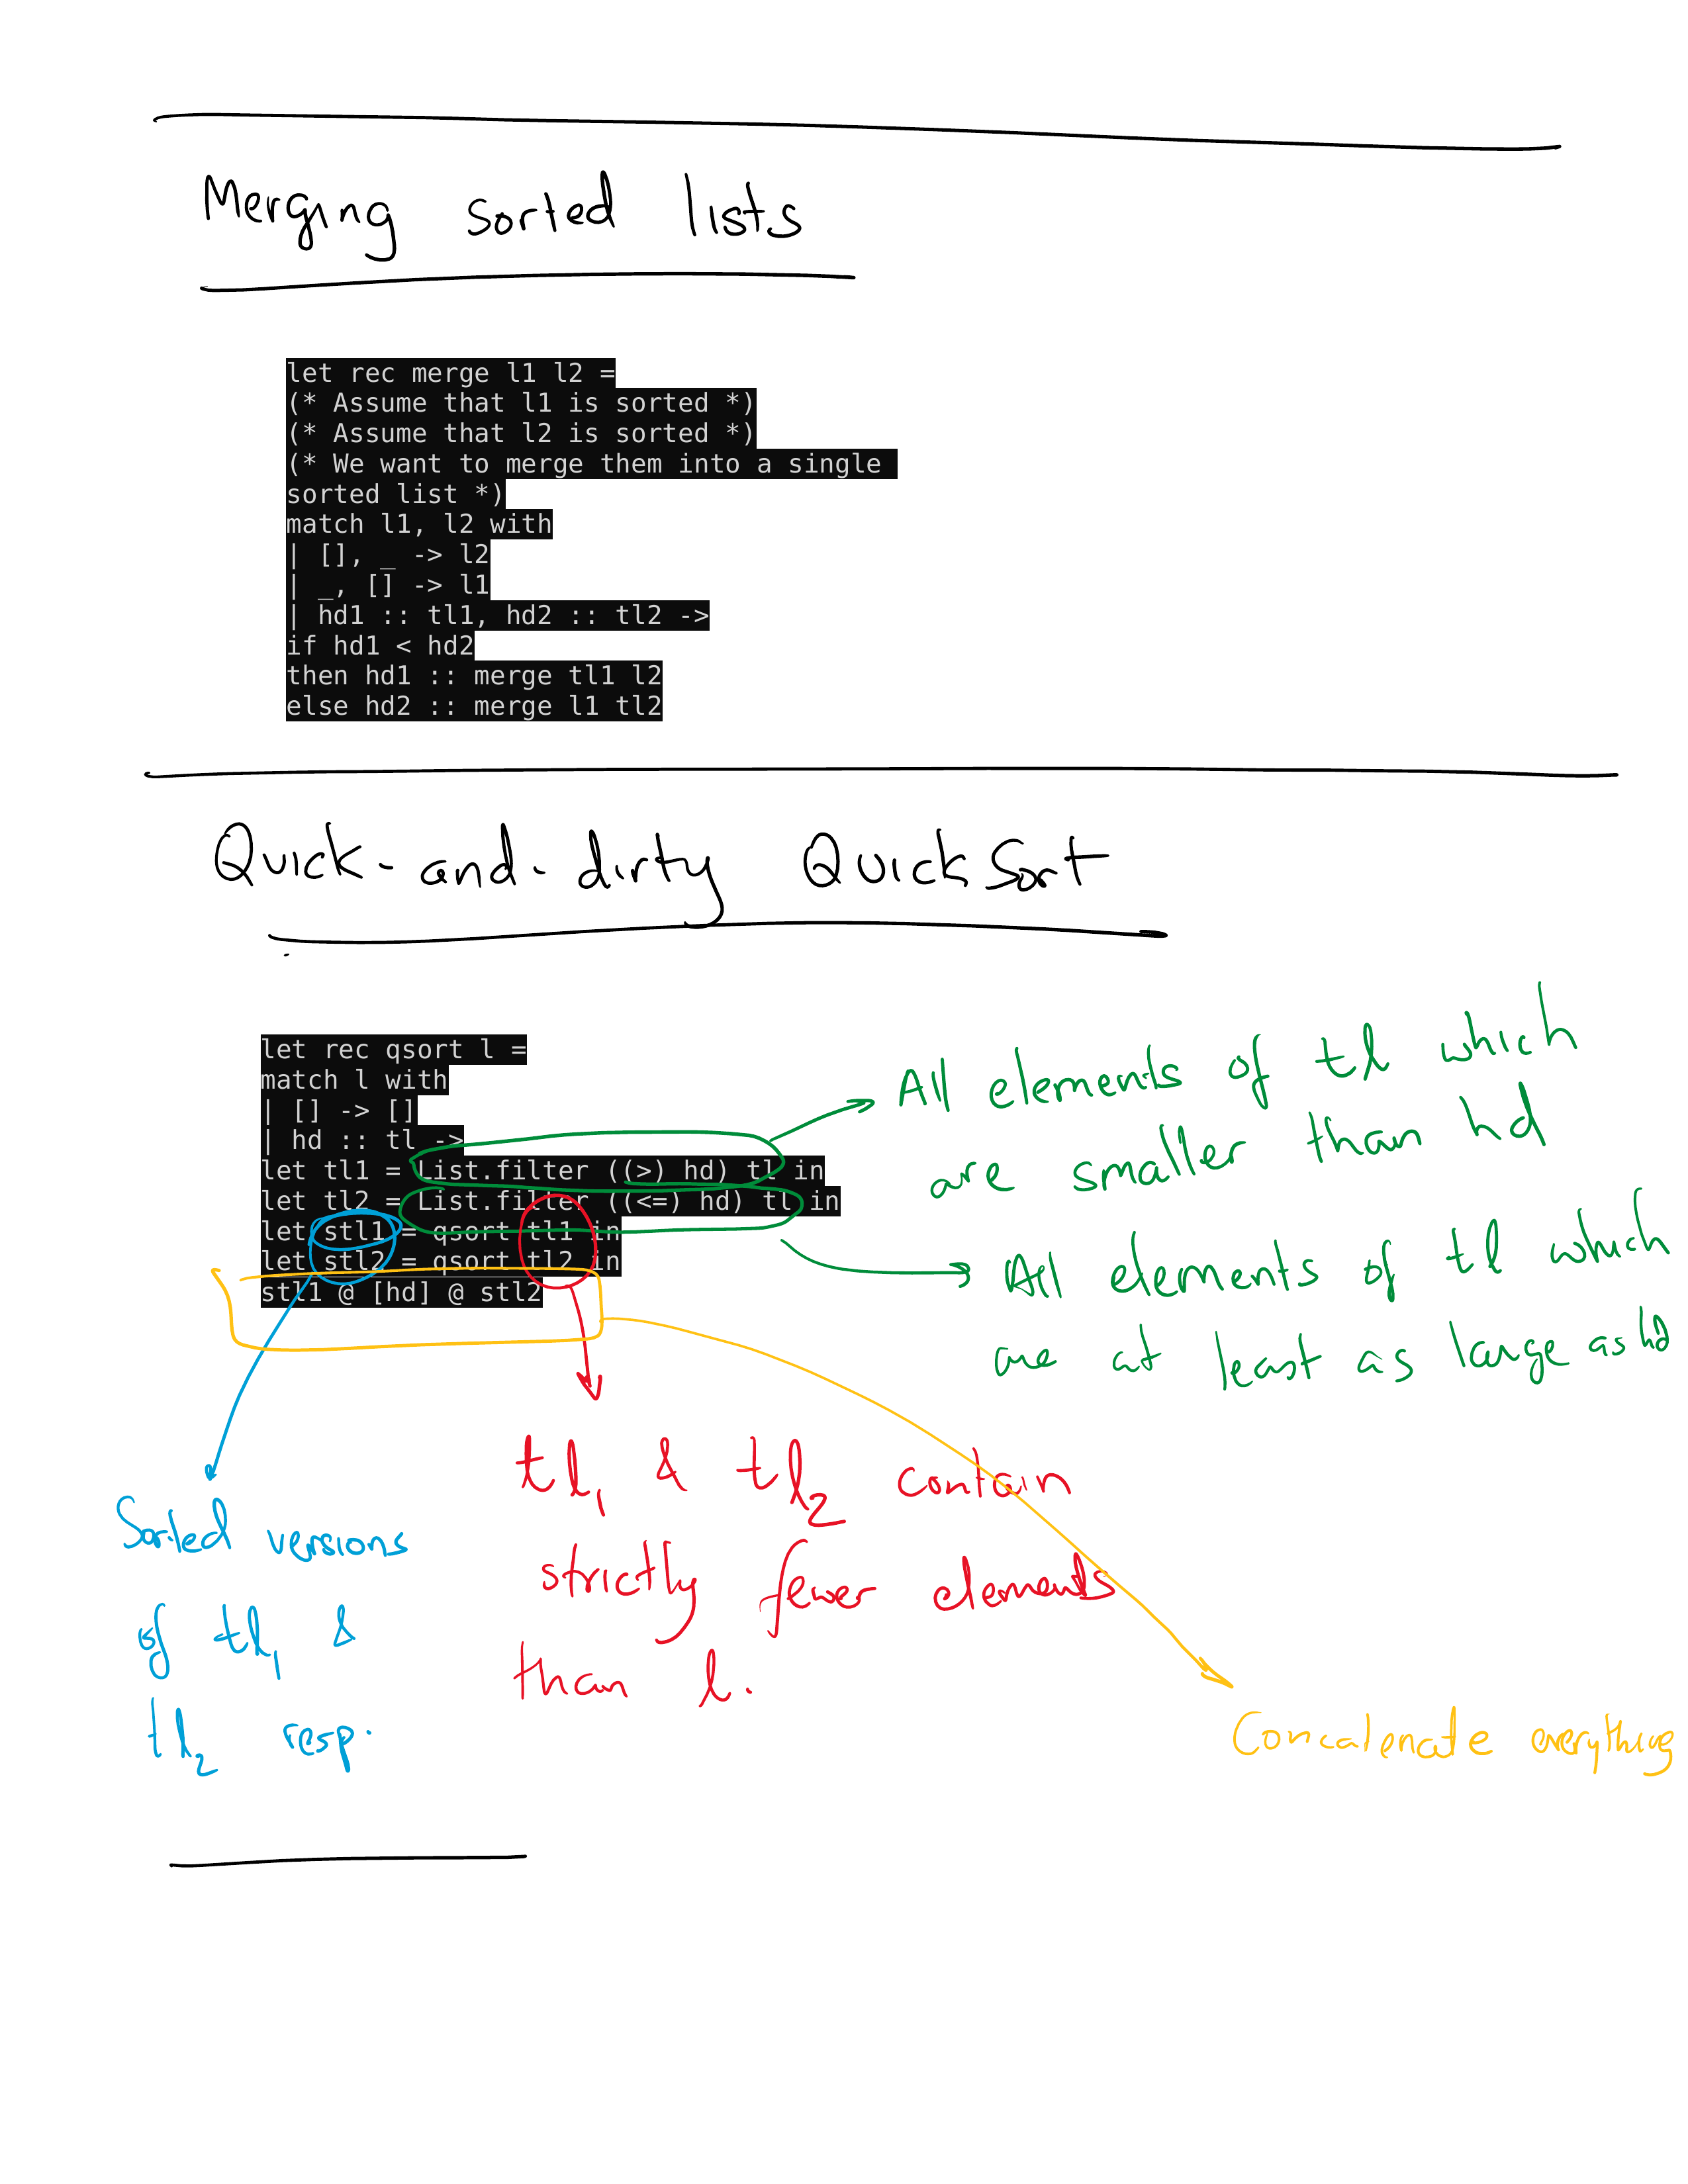 Merging sorted lists
let rec merge l1 l2 =
(* Assume that l1 is sorted *)
(* Assume that l2 is sorted *)
(* We want to merge them into a single
sorted list *)
match l1, l2 with
| [], _ -> l2
| _, [] -> l1
| hd1 :: tl1, hd2 :: tl2 ->
if hd1 < hd2
then hd1 :: merge tl1 l2
else hd2 :: merge l1 tl2
Quick-and-dirty QuickSort
let rec qsort l =
match l with
| [] -> []
| hd :: tl ->
let tl1 = List.filter ((>) hd) tl in
let tl2 = List.filter ((<=) hd) tl in
let stl1 = qsort tl1 in
let stl2 = qsort tl2 in
stl1 @ [hd] @ stl2
All elements of tl which
are smaller than hd
All elements of tl which
are at least as large as hd
Sorted versions
of tl1 &
tl2 resp.
tl1 & tl2 contain
strictly fewer elements
than l.
Concatenate everything